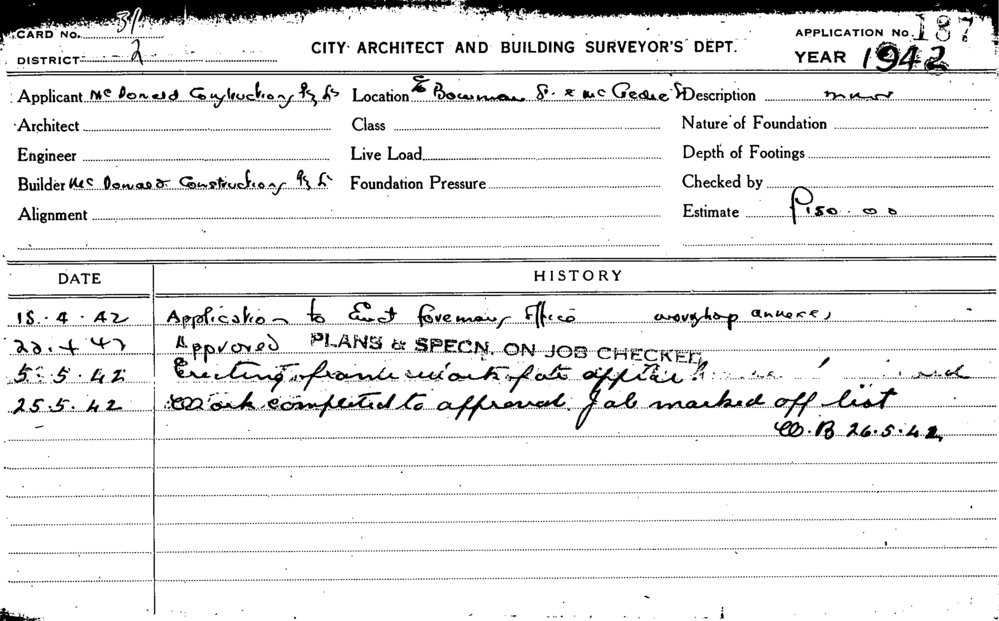 CARD No. 31
DISTRICT 2
CITY ARCHITECT AND BUILDING SURVEYOR'S DEPT.
APPLICATION No. 187
YEAR 1942
Applicant McDonald Constructions Location Bowman St. & Description
Architect Class Nature of Foundation
Engineer Live Load Depth of Footings
Builder McDonald Constructions Foundation Pressure Checked by
Alignment Estimate £150.00
DATE HISTORY
18.4.42 Application to Erect foremans office workshop annexe
Approved PLANS & SPECN. ON JOB CHECKED
5.5.42 Erecting framework of
25.5.42 Work completed to approval. Job marked off list
26.5.42